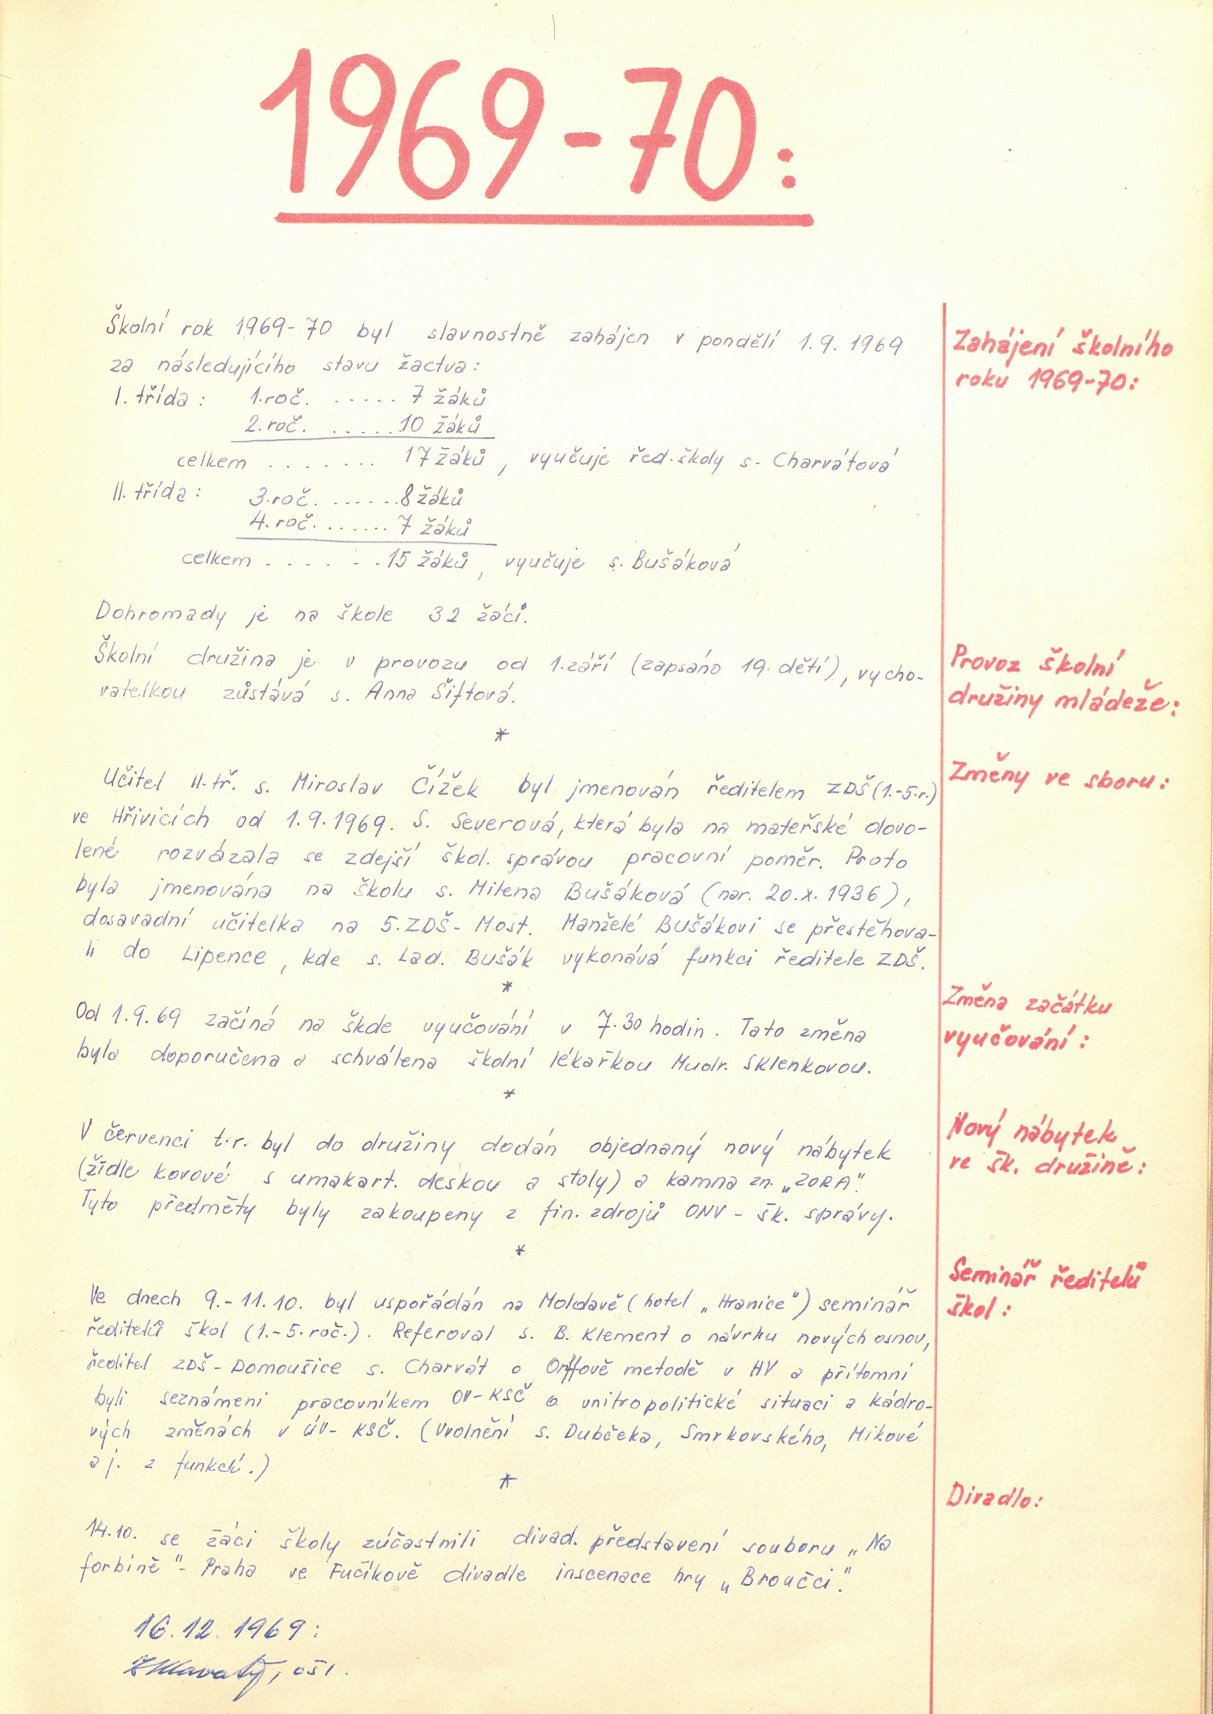 1969-70:
Školní rok 1969-70 byl slavnostně zahájen v pondělí 1.9.1969
za následujícího stavu žactva:
I. třída: 1.roč. ..... 7 žáků
2.roč. ..... 10 žáků
celkem ....... 17 žáků, vyučuje řed.školy s. Charvátová
II. třída: 3.roč. ...... 8 žáků
4.roč. ...... 7 žáků
celkem ...... 15 žáků, vyučuje s. Bušáková
Zahájení školního
roku 1969-70:
Dohromady je na škole 32 žáci.
Školní družina je v provozu od 1.září (zapsáno 19.dětí), vycho-
vatelkou zůstává s. Anna Šiftová.
Provoz školní
družiny mládeže:
*
Učitel II.tř. s. Miroslav Čížek byl jmenován ředitelem ZDŠ (1.-5.r.)
ve Hřivicích od 1.9.1969. S. Severová, která byla na mateřské dovo-
lené rozvázala se zdejší škol. správou pracovní poměr. Proto
byla jmenována na školu s. Milena Bušáková (nar. 20.x.1936),
dosavadní učitelka na 5.ZDŠ-Most. Manželé Bušákovi se přestěhova-
li do Lipence, kde s. Lad. Bušák vykonává funkci ředitele ZDŠ.
Změny ve sboru:
*
Od 1.9.69 začíná na škole vyučování v 7.30 hodin. Tato změna
byla doporučena a schválena školní lékařkou Mudr. Sklenkovou.
Změna začátku
vyučování:
*
V červenci t.r. byl do družiny dodán objednaný nový nábytek
(židle kovové s umakart. deskou a stoly) a kamna zn. „ZORA".
Tyto předměty byly zakoupeny z fin. zdrojů ONV - šk. správy.
Nový nábytek
ve šk. družině:
*
Ve dnech 9.-11.10. byl uspořádán na Moldavě (hotel „Hranice") seminář
ředitelů škol (1.-5.roč.). Referoval s. B. Klement o návrhu nových osnov,
ředitel ZDŠ-Domoušice s. Charvát o Orffově metodě v HV a přítomní
byli seznámeni pracovníkem OV-KSČ o vnitropolitické situaci a kádro-
vých změnách v ÚV-KSČ. (Uvolnění s. Dubčeka, Smrkovského, Mikové
a j. z funkcí.)
Seminář ředitelů
škol:
*
14.10. se žáci školy zúčastnili divad. představení souboru „Na
forbíně"- Praha ve Fučíkově divadle inscenace hry „Broučci".
Divadlo:
16.12.1969:
Hlavatý, oši.